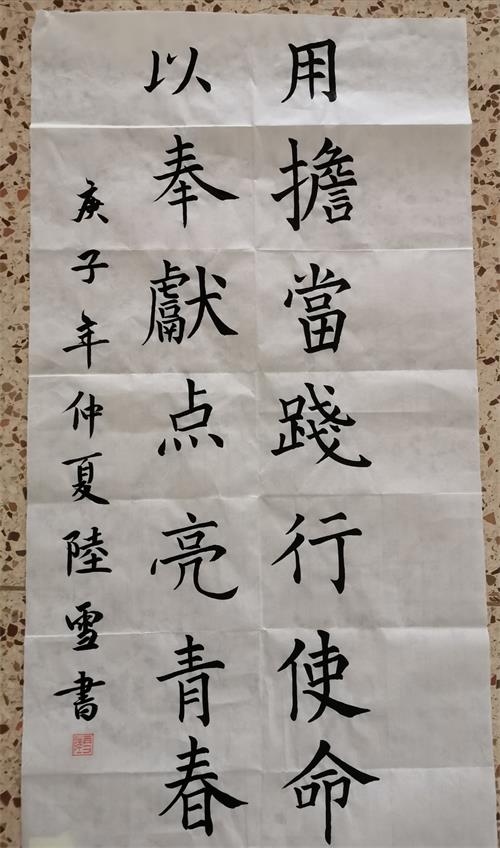 用擔當踐行使命
以奉獻点亮青春
庚子年仲夏陸雪書